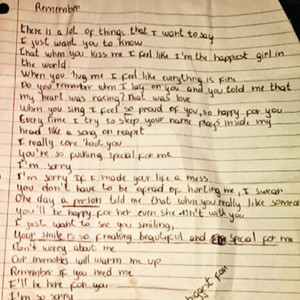 Remember
there is a lot of things that I want to say
I just want you to know
that when you kiss me I feel like I'm the happiest girl in
the world
When you hug me I feel like everything is fine
Do you remember when I lay on you and you told me that
my heart was racing? That was love
When you sing I feel so proud of you, so happy for you
Every time I try to sleep your name plays inside my
head like a song on repeat
I really care 'bout you
You're so fucking special for me
I'm sorry
I'm sorry If I made your life a mess
you don't have to be afraid of hurting me, I swear
One day a person told me that when you really like someone
you'll be happy for her even she isn't with you
I just want to see you smiling,
Your smile is so freaking beautiful and special for me
Don't worry about me
Our memories will warm me up
Remember if you need me
I'll be here for you
I'm so sorry
biggest fan